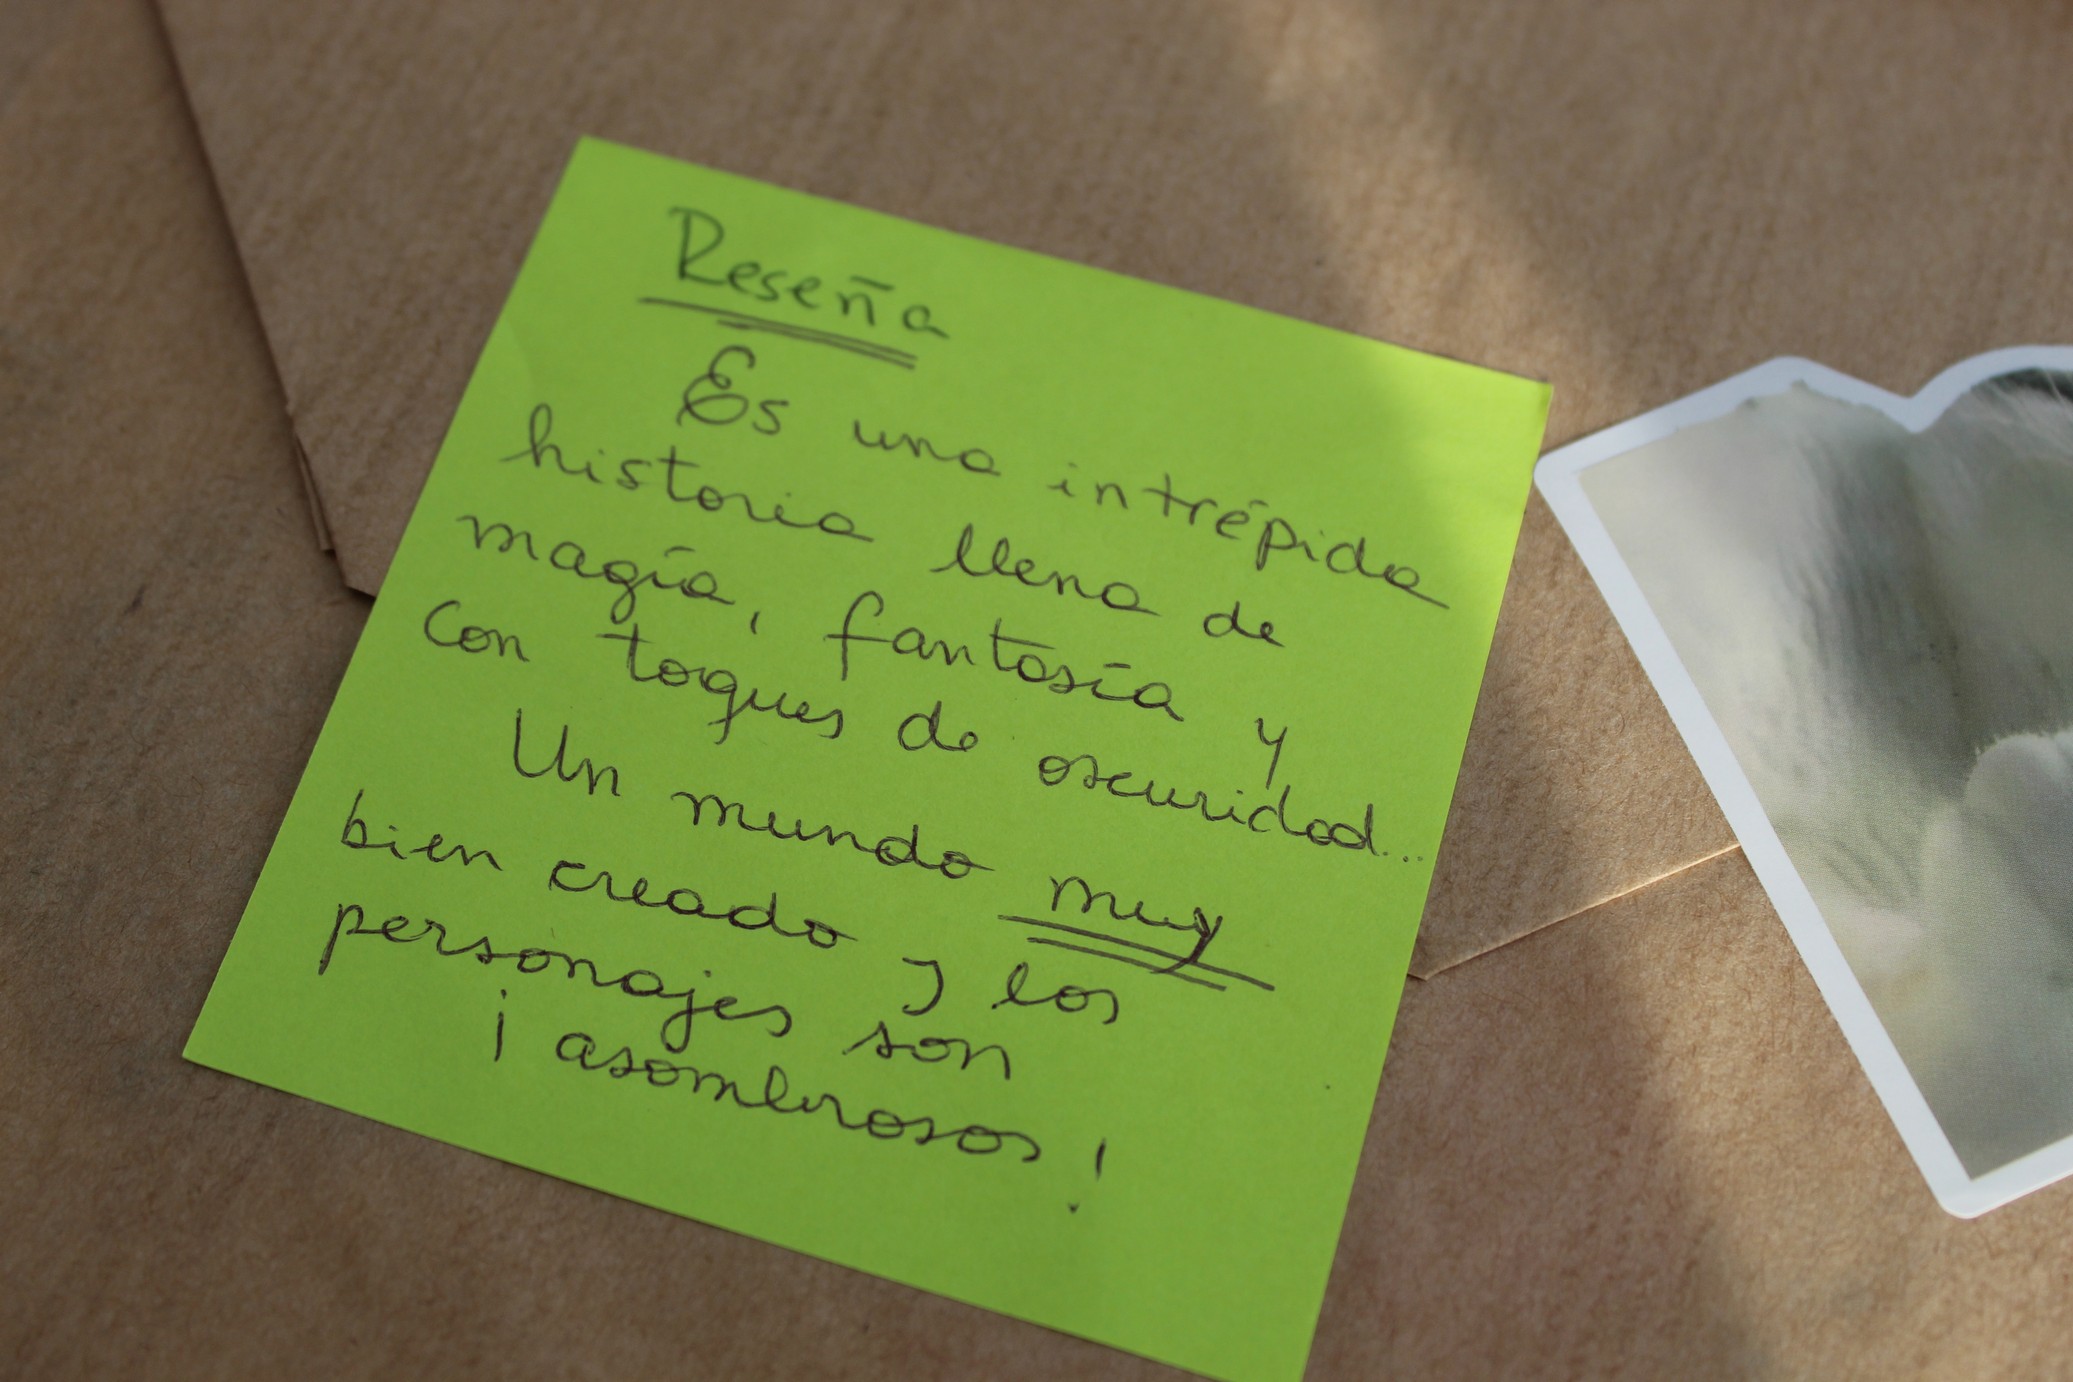 Reseña
Es una intrépida
historia llena de
magía, fantasía y
con toques de oscuridad...
Un mundo muy
bien creado y los
personajes son
¡asombrosos!